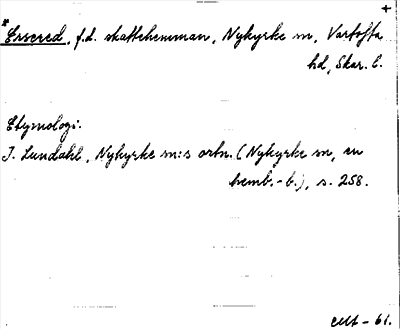 +
*Ersered, f.d. skattehemman, Nykyrke sn, Vartofta
hd, Skar. l.
Etymologi:
I. Lundahl, Nykyrke sn:s ortn. (Nykyrke sn, en
hemb.-b.), s. 258.
- 61.